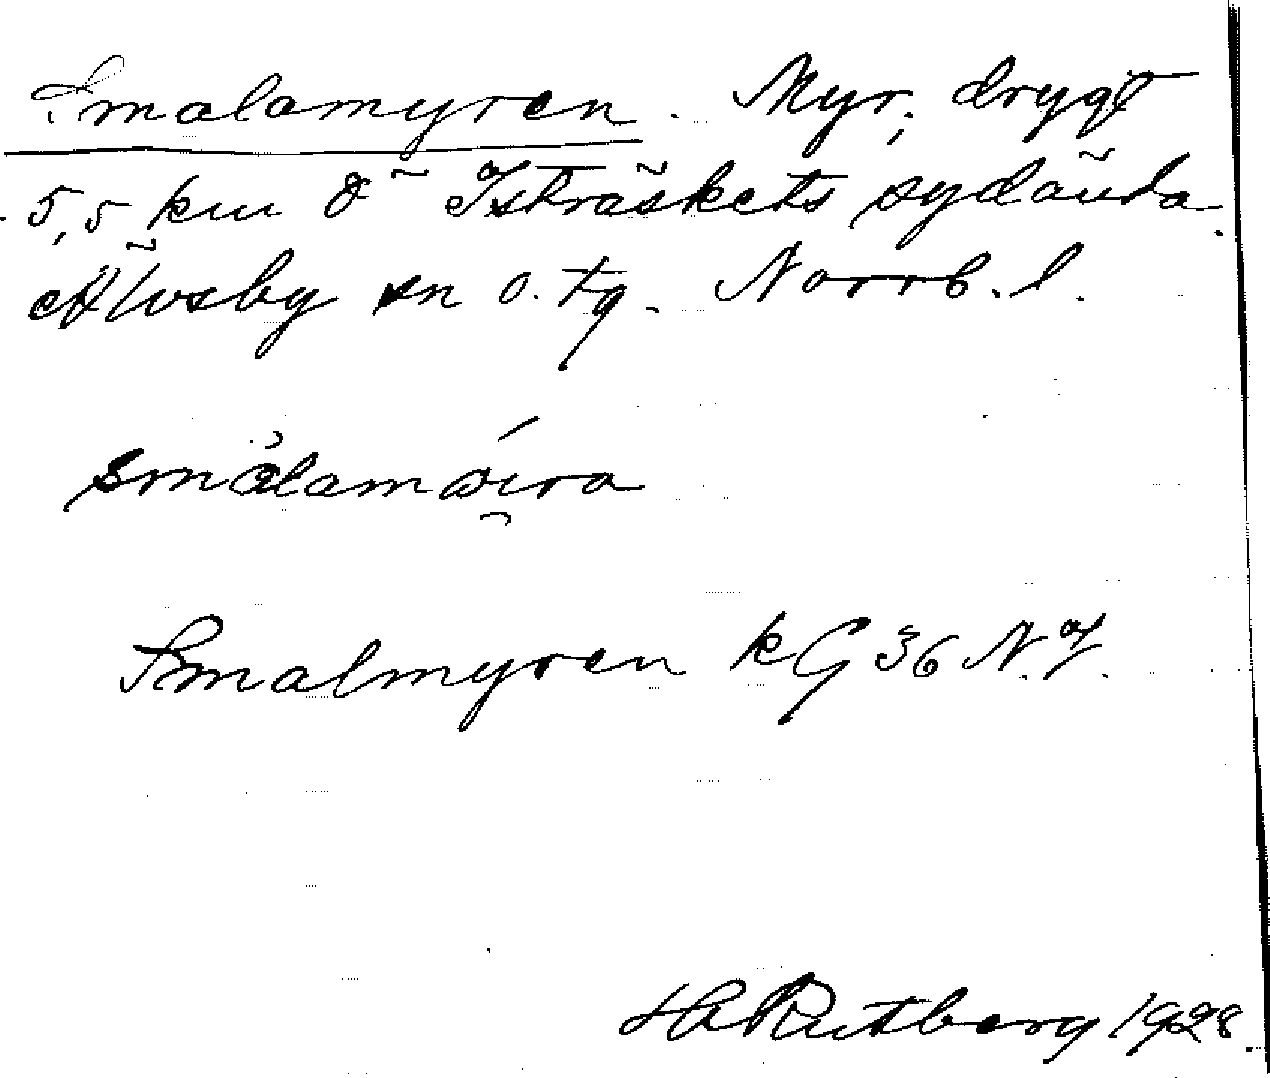 Smalamyren. Myr; drygt
5,5 km ö Isträskets sydända.
Älvsby sn o. tg. Norrb. l.
Smalmyren kG 36 N.V.
H Rutberg 1928.